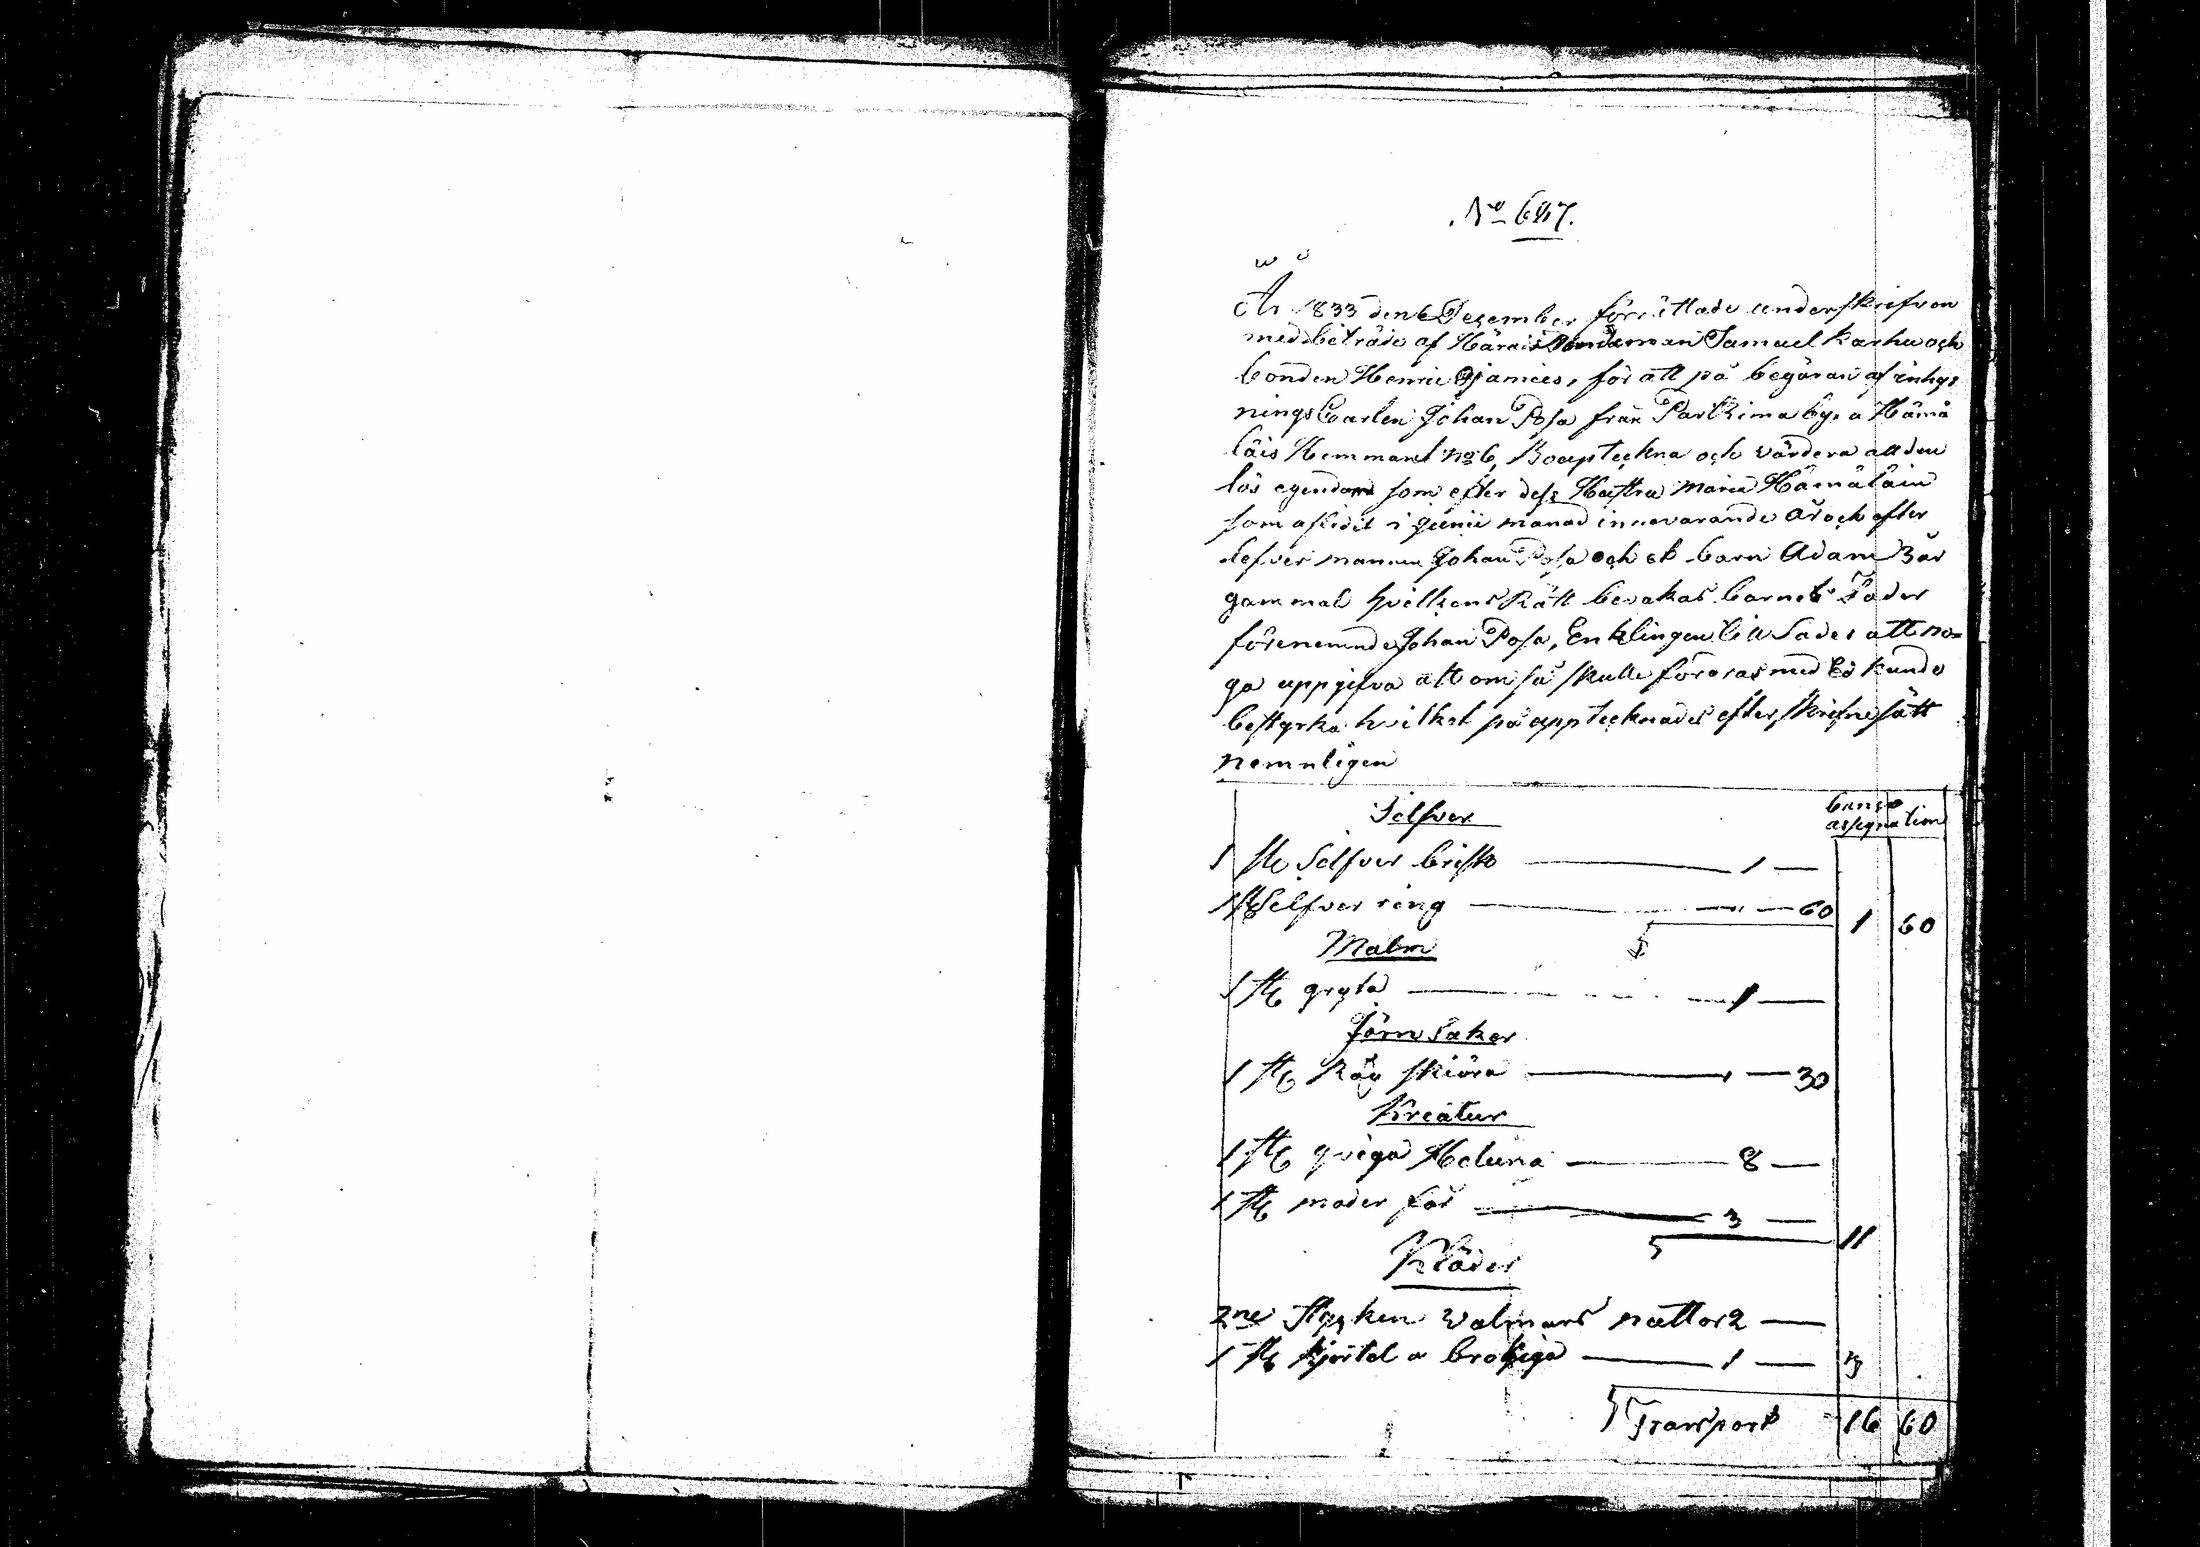 No 687.
År 1833 den 6 Dezember förrättade underskrifven
med biträde af Härads Nämdeman Samuel Karhu och
bonden Henric Ojanies, för att på begäran af inhys
nings Carlen Johan Posa från Parkima by, a Hämä
läis Hemmant No 6, Boupteckna och värdera all den
lös egendom som efter dess Hustru Maria Hämäläin
som aflidit i Junii månad innevarande År och efter
lefver mannen Johan Posa och et barn Adam 3 år
gammal hvilkens Rätt bevakas barnets Fader
förenemnde Johan Posa, Enklingen tillsades att no=
ga uppgifva att om så skulle fordras med Ed kunde
bestyrka hvilket på upptecknades efter skrefne sätt
nemnligen
banco
Silfver assignation
1 st Selfver brisk — 1 —
1 st Selfver ring — " — 60 1 60
Malm
1 st gryta — 1 —
Järn Saker
1 st Råg skiöra — " — 30
Kreatur
1 st qviga Heluna — 8 —
1 st moder får — 3 — 11
Kläder
2ne stycken Walmars nattor 2 —
1 st kjortel a brokiga — 1 — 3
Transport 16 60